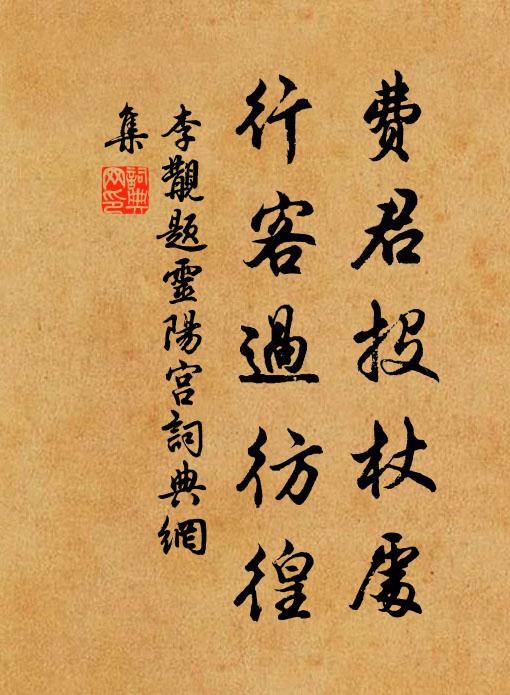 費君投杖處
行客過彷徨
李觏題靈陽宫詞典網
集
詞典
网印